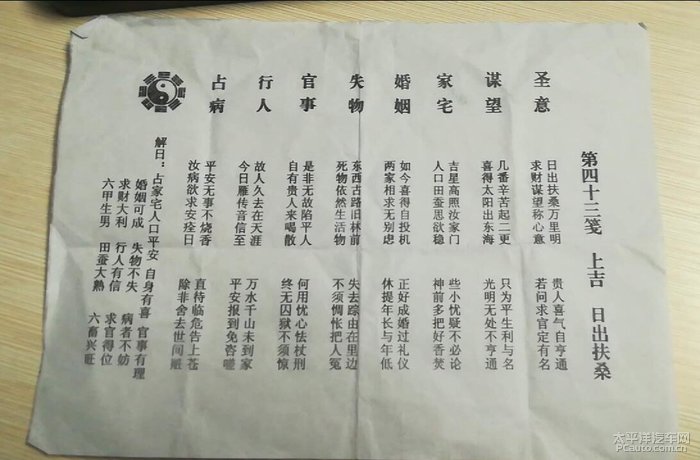 第四十三笺 上吉 日出扶桑
圣意
日出扶桑万里明 贵人喜气自亨通
求财谋望称心意 若问求官定有名
谋望
几番辛苦起二更 只为平生利与名
喜得太阳出东海 光明无处不亨通
家宅
吉星高照汝家门 些小忧疑不必论
人口田蚕思欲稳 神前多把好香焚
婚姻
如今喜得自投机 正好成婚过礼仪
两家相求无别虑 休提年长与年低
失物
东西古路旧林前 失去踪由在里边
死物依然生活物 不须惆怅把人冤
官事
是非无故陷平人 何用忧心怯杖刑
自有贵人来喝散 终无囚狱不须惊
行人
故人久去在天涯 万水千山未到家
今日雁传音信至 平安报到免咨嗟
占病
平安无事不烧香 直待临危告上苍
汝病欲求安痊日 除非舍去世间
解曰：占家宅人口平安 自身有喜 官事有理
婚姻可成 失物不失 病者不妨
求财大利 行人有信 求官得位
六甲生男 田蚕大熟 六畜兴旺
太平洋汽车网
PCauto.com.cn